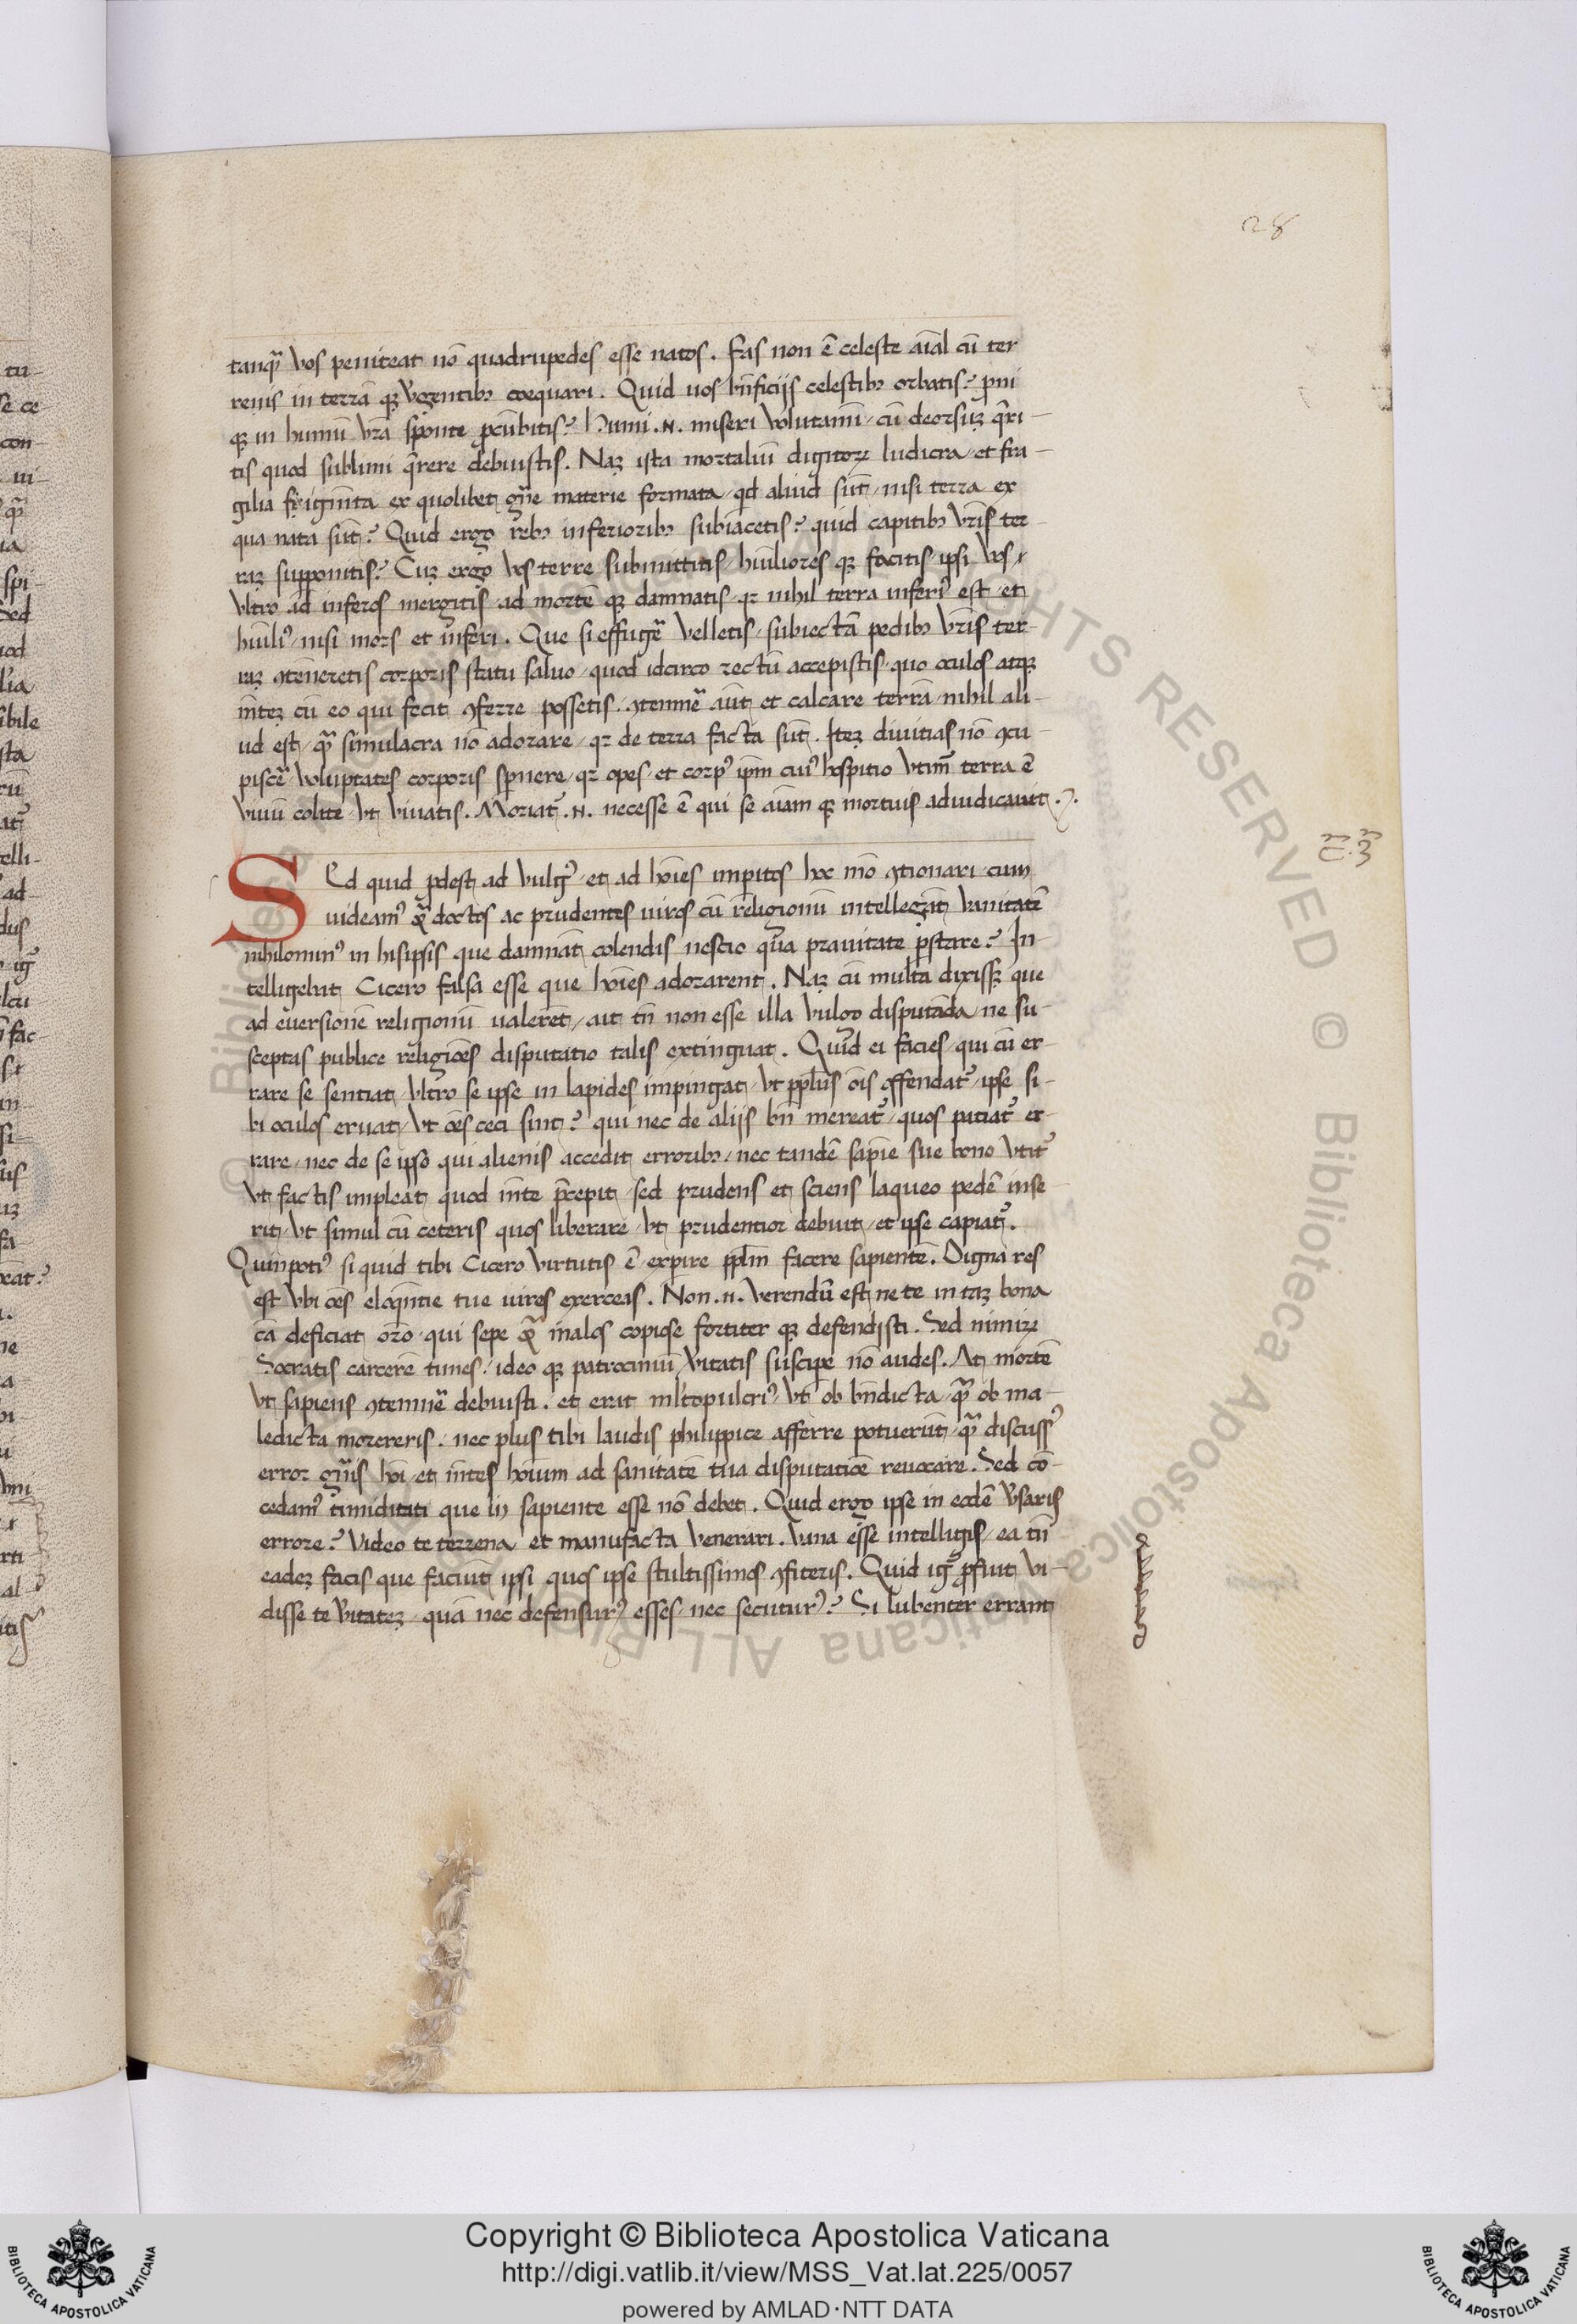 28
tanqᷓ vos peniteat nō quadrupedes esse natos. Fas non ē celeste aīal cū ter
renis in terrā qꝫ v̓gentibꝫ coequari. Quid uos bn̄ficijs celestibꝫ orbatis? pni
qꝫ in humū vr̄a sponte ꝓcūbitis? Humi .N. miseri volutamī / cū deorsuꝫ q̄ri-
tis quod sublimi q̄rere debuistis. Naꝫ ista mortaliū digitoꝝ ludicra / et fra-
gilia ex quolibet gn̄e materie formata / qd aliud sūt / nisi terra ex
qua nata sūt? Quid ergo rebꝫ inferioribꝫ subiacetis? quid capitibꝫ vr̄is ter-
raꝫ supponitis? Cuꝫ ergo vos terre submittitis / hūiliores qꝫ facitis ipsi vos /
vltro ad inferos mergitis / ad mortē qꝫ damnatis / qꝛ nihil terra inferi⁹ est / et
hūili⁹ / nisi mors et inferi. Que si effugē velletis / subiectā pedibꝫ vr̄is ter-
raꝫ ꝯtēneretis corporis statu saluo / quod idcirco rectū accepistis / quo oculos atqꝫ
mēteꝫ cū eo qui fecit ꝯferre possetis. ꝯtemnē aūt et calcare terrā / nihil ali-
ud est / qᷓ simulacra nō adorare / qꝛ de terra facta sūt. Iteꝫ diuitias nō ꝯcu-
piscē voluptates corporis spernere / qꝛ opes / et corp⁹ ipm̄ cui⁹ hospitio vtimr̄ terra ē
viuū colite / vt viuatis. Moriat᷑ .N. necesse ē qui se aīam qꝫ mortuis adiudicauit.
SEd quid ꝓdest ad vulg⁹ / et ad hoīes imperitos hoc mō ꝯtionari / cum
uideam⁹ qᷓ doctos ac prudentes uiros cū religionū intellegāt vanitatē
nihilomin⁹ in hisipsis que damnāt colendis nescio qua prauitate p̱stare? In-
telligebat Cicero falsa esse que hoīes adorarent. Naꝫ cū multa dixissꝫ que
ad euersionē religionū ualerēt / ait tn̄ non esse illa vulgo disputāda / ne su-
sceptas publice religiōes disputatio talis extinguat. Quid ei facies / qui cū er-
rare se sentiat / vltro se ipse in lapides impingat / vt pplus oīs offendat᷑ / ipse si-
bi oculos eruat / vt oēs ceci sint? qui nec de alijs bn̄ mereat᷑ / quos patiat᷑ er-
rare / nec de se ipso qui alienis accedit erroribꝫ / nec tandē sapīe sue bono vtit᷑
vt factis impleat quod mēte p̄cepit / sed prudens et sciens laqueo pedē inse
rit / vt simul cū ceteris quos liberare / vt prudentior debuit / et ipse capiat᷑.
Quinpoti⁹ si quid tibi Cicero virtutis ē / exp̱ire pplm̄ facere sapientē. Digna res
est vbi oēs eloq̄ntie tue uires exerceas. Non .n. verendū est / ne te in taꝫ bona
cā deficiat or̄o / qui sepe qᷓ malas copiose fortiter qꝫ defendisti. Sed nimiꝝ
Socratis carcerē times / ideo qꝫ patrociniū v̓itatis suscipe nō audes. At mortē
vt sapiens ꝯtemnē debuisti. et erat ml̓topulcri⁹ / vt ob bn̄dicta / qᷓ ob ma-
ledicta morereris. nec plus tibi laudis philippice afferre potuerūt / qᷓ discuss⁹
error gn̄is hoī / et mētes hoīum ad sanitatē tua disputatiōe reuocare. Sed cō-
cedam⁹ timiditati que in sapiente esse nō debet. Quid ergo ipse in eodē v̓saris
errore? Video te terrena et manufacta venerari. Vana esse intelligis / ea tn̄
eadeꝫ facis que faciūt ipsi quos ipse stultissimos ꝯfiteris. Quid ig᷑ ꝓfuit vi-
disse te v̓itateꝫ / quā nec defensur⁹ esses / nec secutur⁹? Si lubenter errant
© Biblioteca Apostolica Vaticana ALL RIGHTS RESERVED
Copyright © Biblioteca Apostolica Vaticana
http://digi.vatlib.it/view/MSS_Vat.lat.225/0057
powered by AMLAD·NTT DATA
BIBLIOTECA APOSTOLICA VATICANA
BIBLIOTECA APOSTOLICA VATICANA